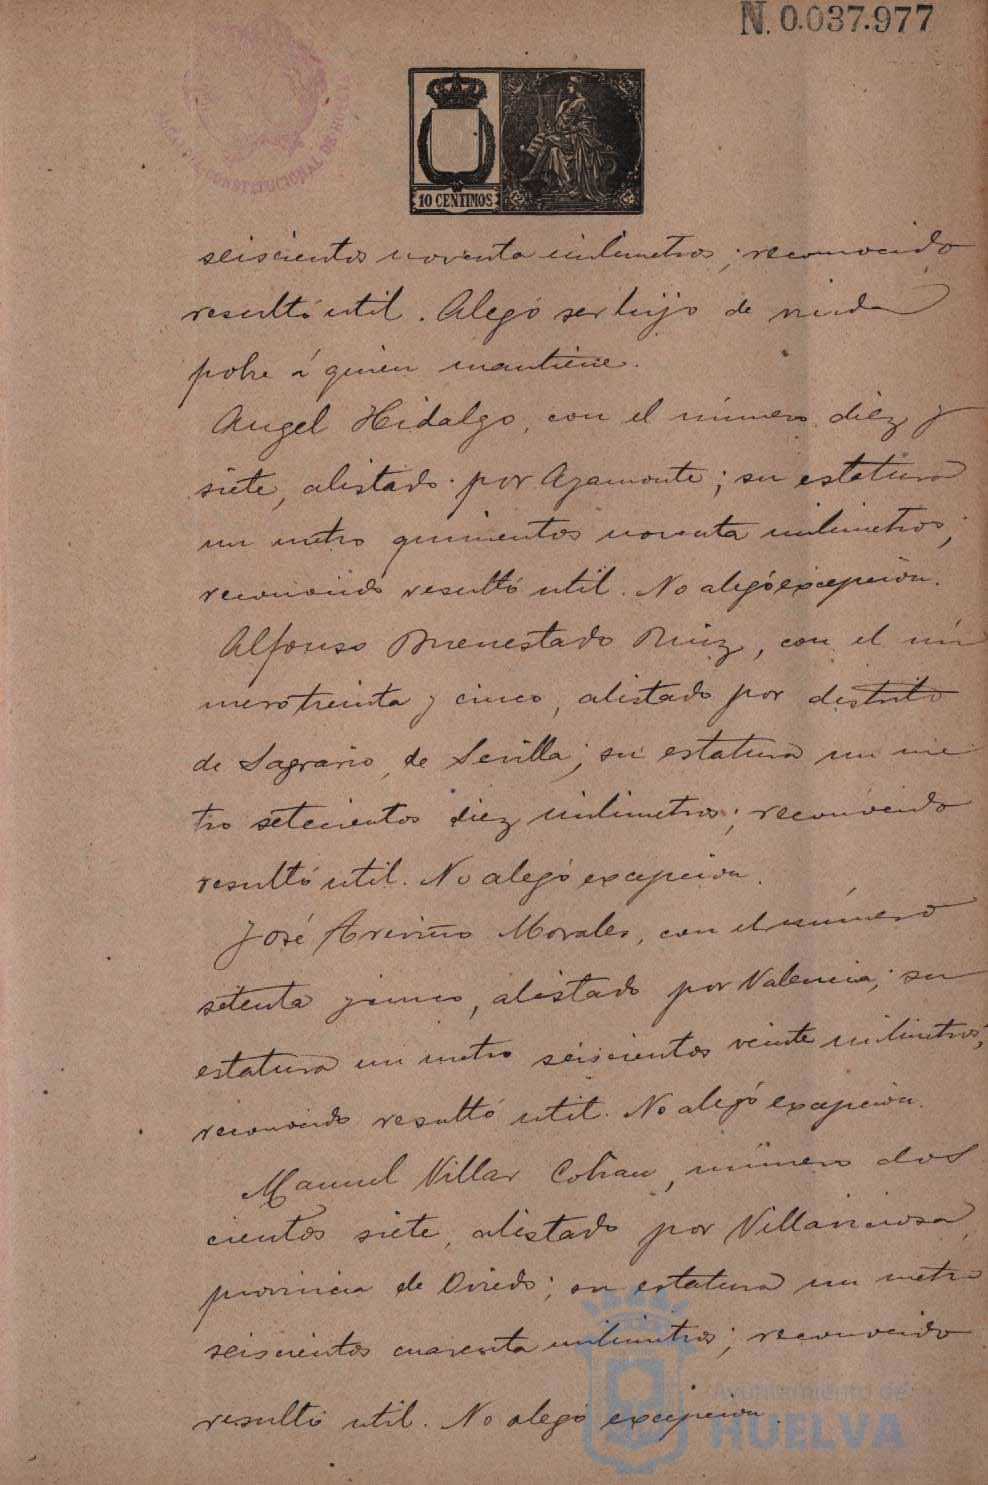 N. 0.037.977
ALCALDIA CONSTITUCIONAL DE HUELVA
10 CENTIMOS
seiscientos noventa milimetros; reconocido
resultó util. Alegó ser hijo de viuda
pobre á quien mantiene.
Angel Hidalgo, con el número diez y
siete, alistado por Ayamonte; su estatura
un metro quinientos noventa milimetros;
reconocido resultó util. No alegó excepcion.
Alfonso Buenestado Ruiz, con el nú
mero treinta y cinco, alistado por distrito
de Sagrario, de Sevilla; su estatura un me
tro setecientos diez milimetros; reconocido
resultó util. No alegó excepcion.
José Morales, con el número
setenta y cinco, alistado por Valencia; su
estatura un metro seiscientos veinte milimetros;
reconocido resultó util. No alegó excepcion.
Manuel Villar Cobian, número dos
cientos siete, alistado por Villaviciosa,
provincia de Oviedo; su estatura un metro
seiscientos cuarenta milimetros; reconocido
resultó util. No alegó excepcion.
Ayuntamiento de
HUELVA